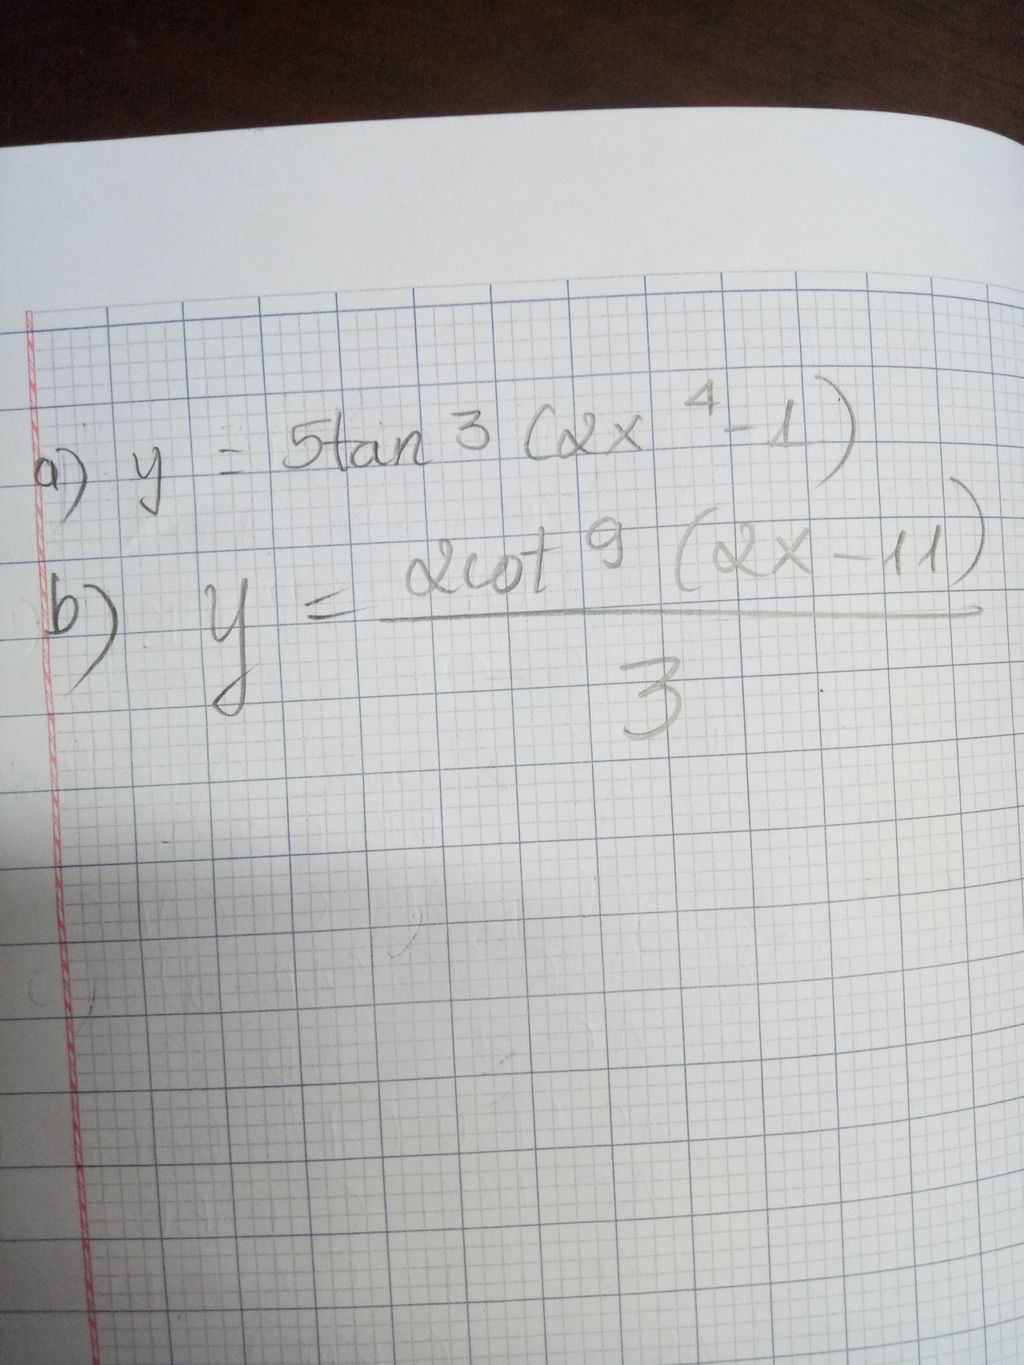 a) y = 5tan³(2x⁴-1)
b) y = 2cot⁹(2x-11)
3